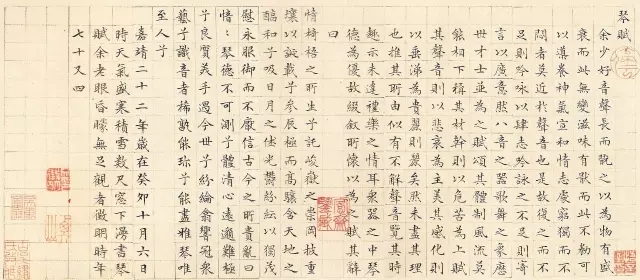 琴賦
余少好音聲長而翫之以為物有盛
衰而此無變滋味有猒而此不勌可
以導養神氣宣和情志處窮獨而不
悶者莫近於聲音也是故復之而不
足則吟詠以肆志吟詠之不足則寄
言以廣意然八音之器歌舞之象歷
世才士並為之賦頌其體制風流莫
能相下稱其材幹則以危苦為上賦
其聲音則以悲哀為主美其感化則
以垂涕為貴麗則麗矣然未盡其理
也推其所由似有不解聲音覽其
趣示未達禮樂之情耳衆器之中琴
德為優故綴叙所懷以為之賦其辭
曰
情椅梧之所生乎託峻嶽之崇岡披重
壤以誕載乎參辰極而高驤含天地之
醕和乎吸日月之休光鬱紛紜以獨茂
慰永服御而不厭信古今之所貴亂曰
愔愔琴德不可測乎體清心遠邈難極
乎良質美手遇今世乎紛綸翕響冠衆
藝乎識音者稀孰能珍乎能盡雅琴唯
至人乎
嘉靖二十二年歲在癸卯十月六日
時天氣盛寒積雪數尺窓下漫書琴
賦余老眼昏矇無足觀者徵明時年
七十又四